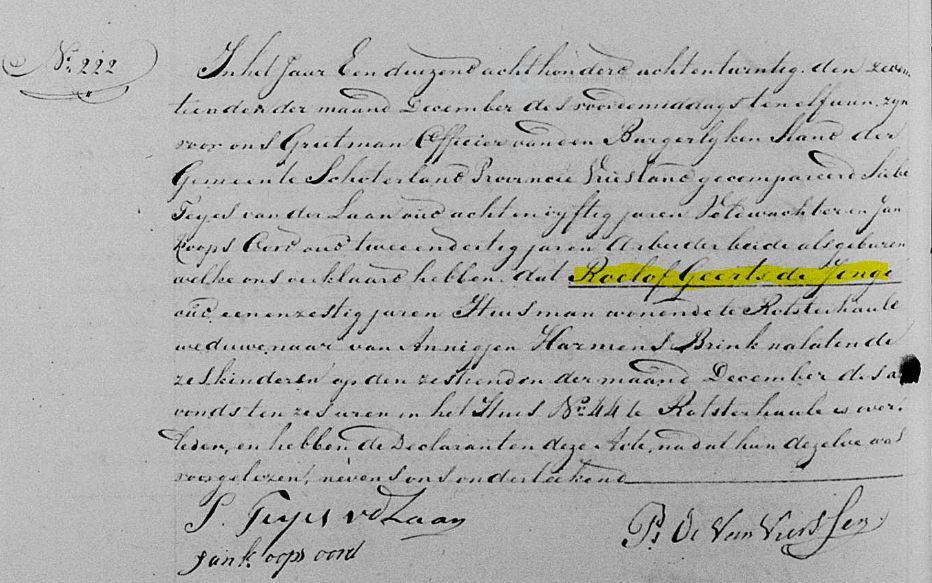 No. 222
In het Jaar Een duizend acht honderd achtentwintig. den zeven
tienden der maand December des voormiddags ten elf uren, zyn
voor ons Grietman Officier van den Burgerlyken Stand der
Gemeente Schoterland Provincie Vriesland gecompareerd Siebe
Feyes van der Laan oud acht en vyftig jaren Veldwachter en Jan
Koops Oord oud twee en dertig jaren Arbeider beide als geburen
welke ons verklaard hebben, dat Roelof Geerts de Jonge
oud eenenzestig jaren Huisman wonende te Rotsterhaule
weduwenaar van Annigjen Harmens Brink nalatende
zes kinderen op den zestienden der maand December des a
vonds ten zes uren in het Huis No. 44 te Rotsterhaule is over,
leden, en hebben de Declaranten deze Acte, na dat hun dezelve was
voorgelezen, nevens ons onderteekend
S. Feyes vd Laan
Jan koops oord